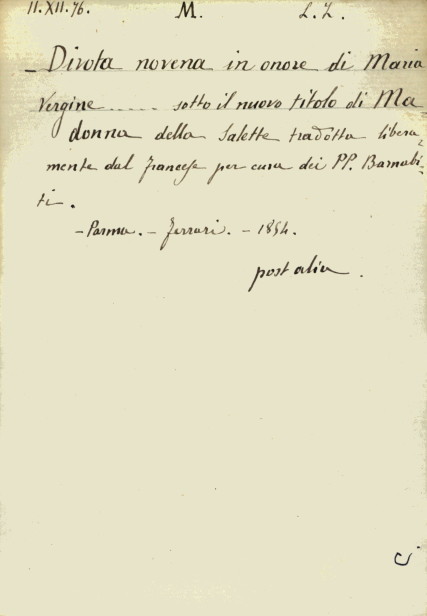 11.XII.76. M. L.Z.
- Divota novena in onore di Maria
Vergine ...... sotto il nuovo titolo di Ma-
donna della Salette tradotta libera-
mente dal francese per cura dei PP. Barnabi-
ti.
- Parma. - Ferrari. - 1854.
post alia.